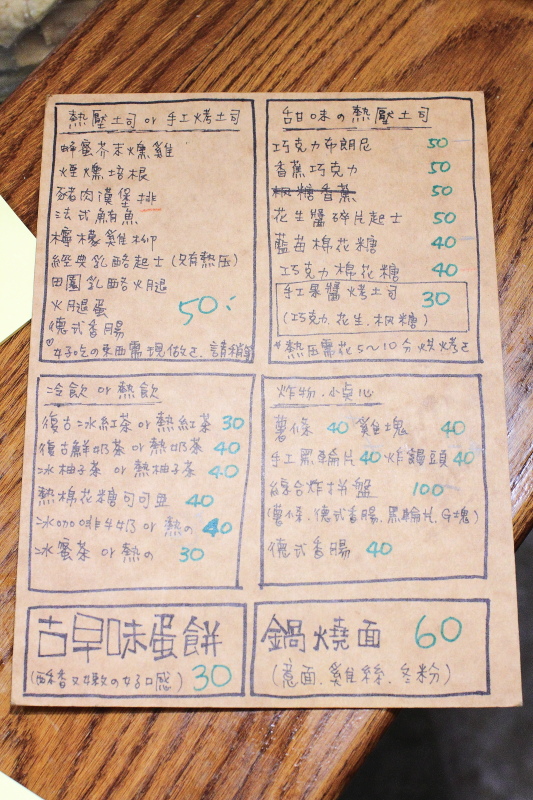 熱壓土司 or 手工烤土司
蜂蜜芥末燻雞
煙燻培根
豬肉漢堡排
法式鮪魚
檸檬雞柳
經典乳酪起士(只有熱压)
田園乳酪火腿
火腿蛋 50:
德式香腸
好吃の東西需現做ㄛ,請稍等
甜味の熱壓土司
巧克力布朗尼 50
香蕉巧克力 50
楓糖香蕉 50
花生醬碎片起士 50
藍莓棉花糖 40
巧克力棉花糖 40
手工果醬烤土司 30
(巧克力.花生.楓糖)
*熱压需花5~10分烘烤ㄛ
冷飲 or 熱飲
復古冰紅茶 or 熱紅茶 30
復古鮮奶茶 or 熱奶茶 40
冰柚子茶 or 熱柚子茶 40
熱棉花糖可可亞 40
冰咖啡牛奶 or 熱の 40
冰蜜茶 or 熱の 30
炸物.小点心
薯條 40 雞塊 40
手工黑輪片 40 炸饅頭 40
綜合炸拼盤 100
(薯條.德式香腸.黑輪片.G塊)
德式香腸 40
古早味蛋餅
(酥香又軟の好口感) 30
鍋燒面 60
(意面.雞絲.冬粉)